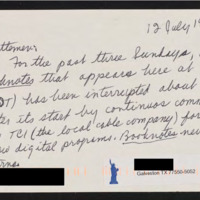 12 July 19
ttemen:
For the past three Sundays,
oknotes that appears here at
DT) has been interrupted about
its start by continuous comm
TCI (the local cable company) for
digital programs. Booknotes ne
Galveston TX 77550-5652